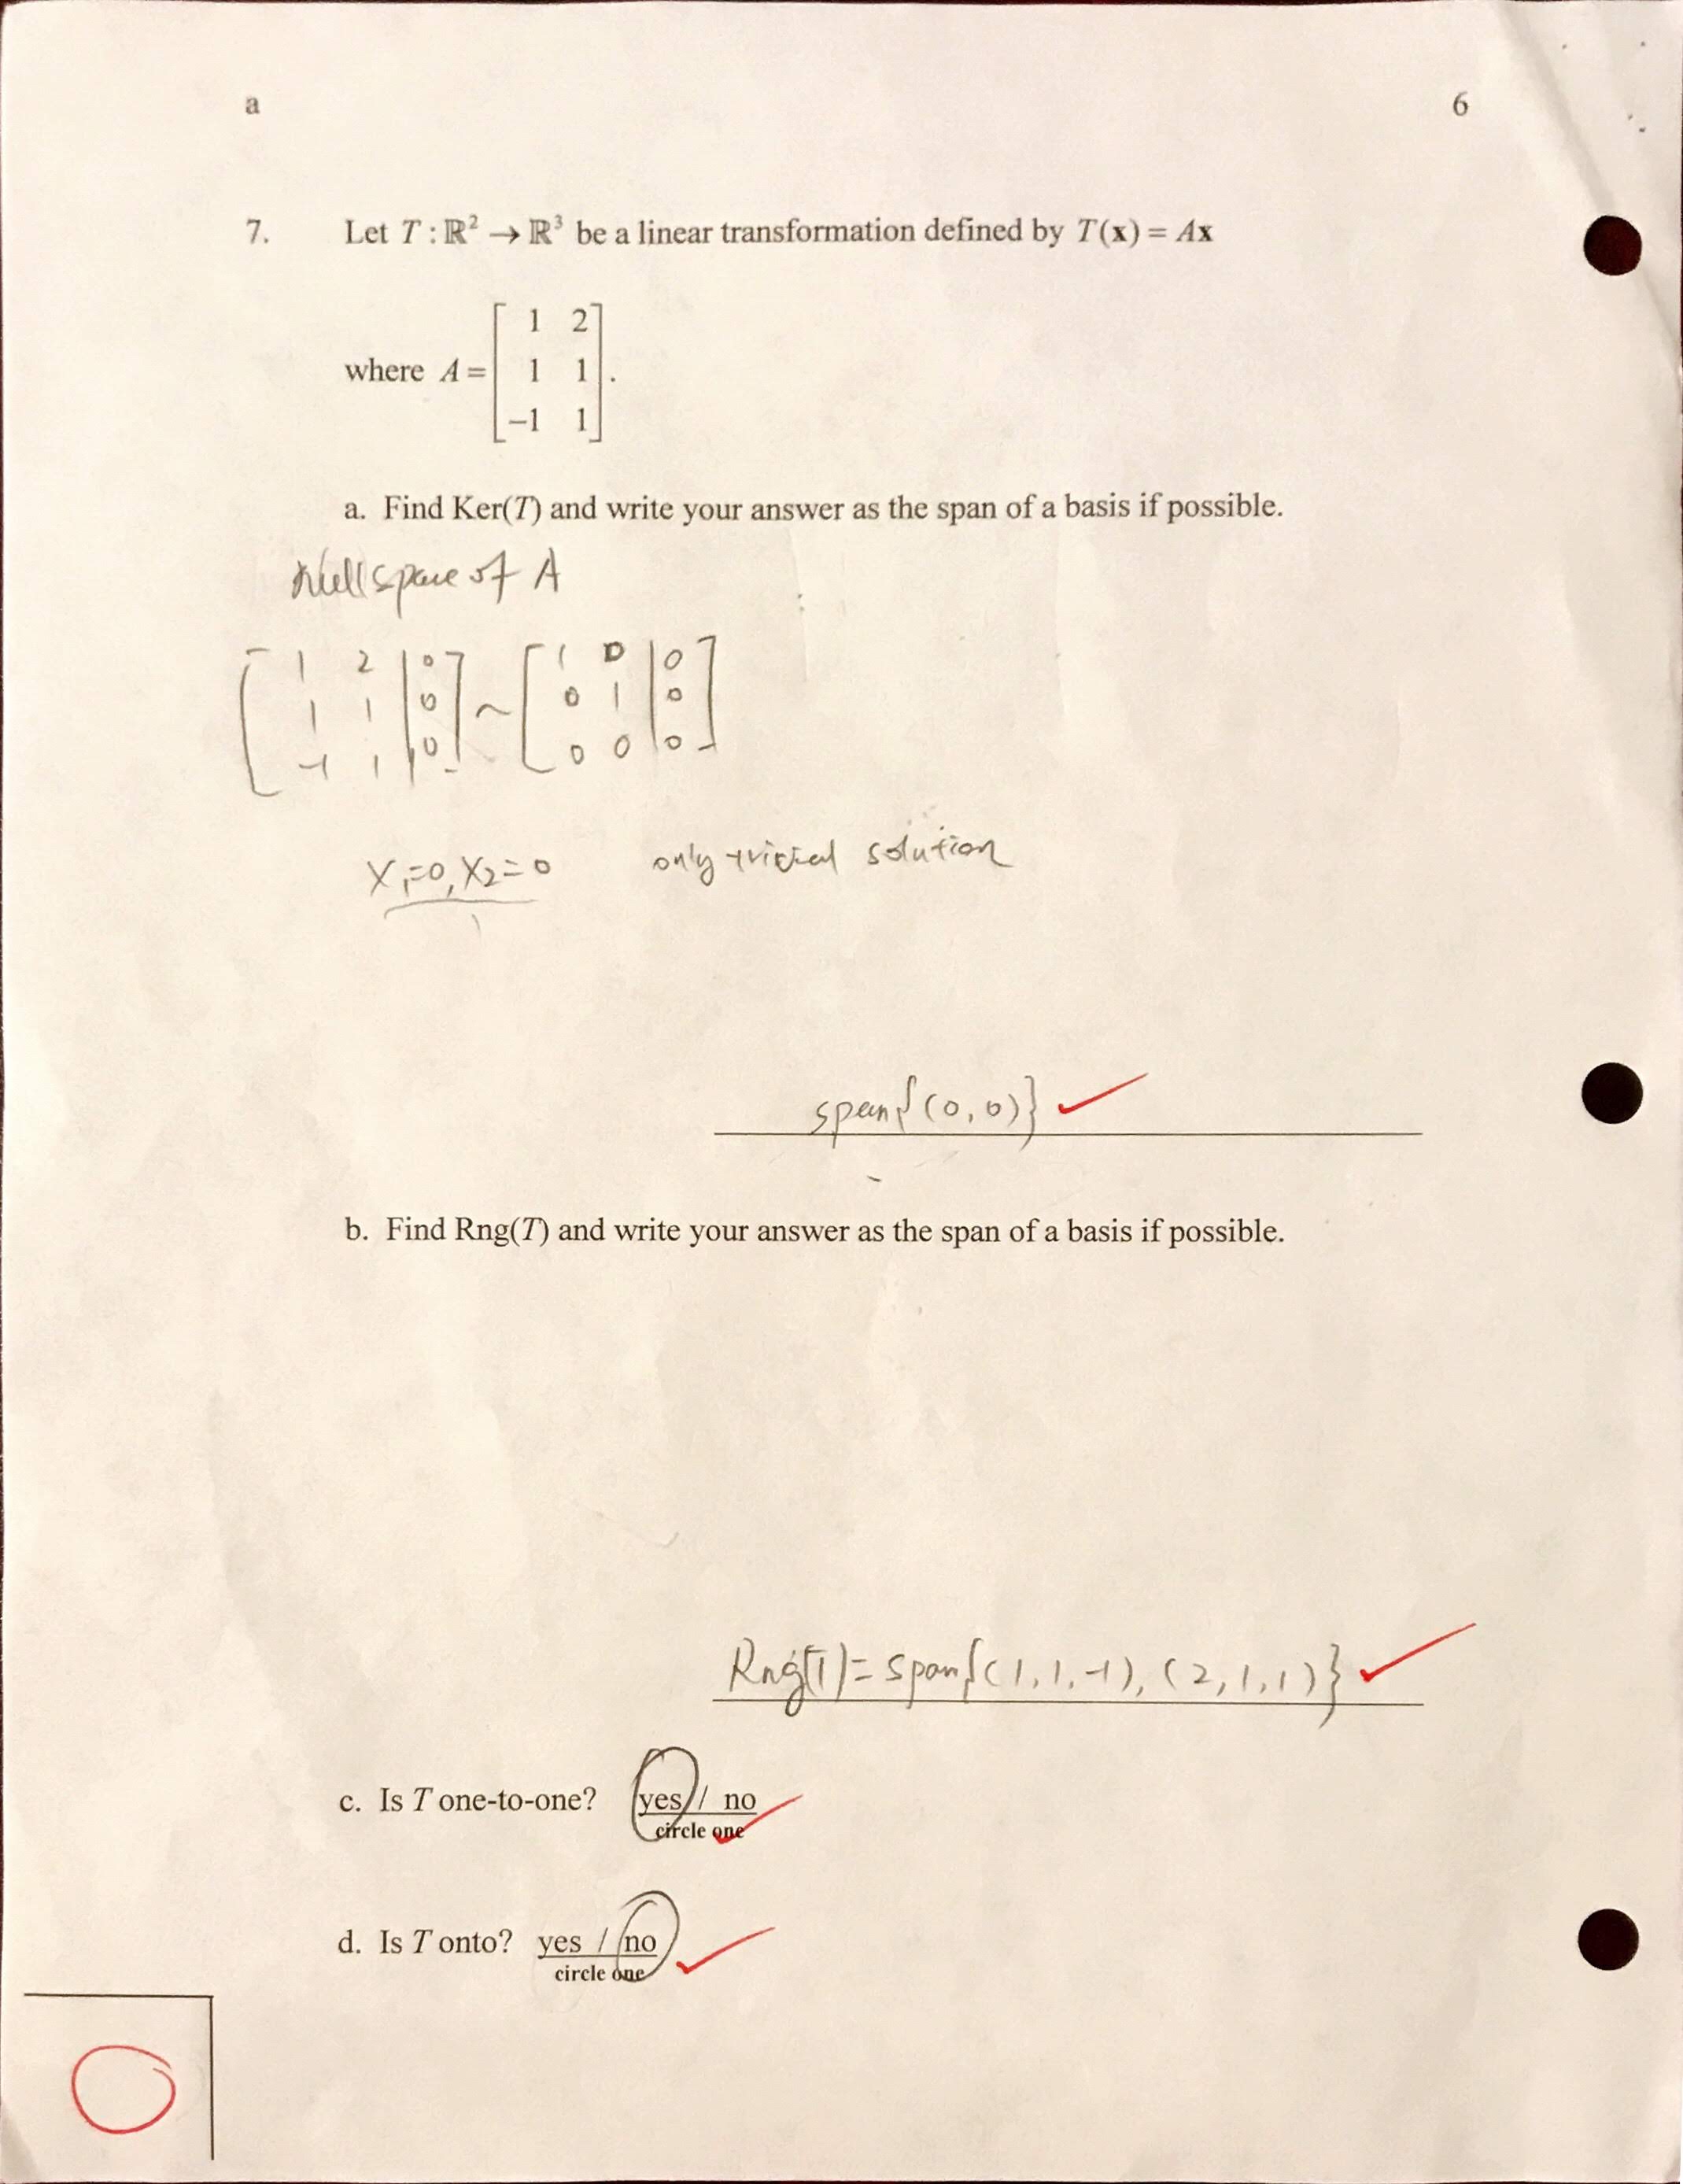 a
6
7. Let T : ℝ² → ℝ³ be a linear transformation defined by T(x) = Ax
where A = [ 1 2
1 1
-1 1 ].
a. Find Ker(T) and write your answer as the span of a basis if possible.
Nullspace of A
[ 1 2 | 0 ] ~ [ 1 0 | 0 ]
[ 1 1 | 0 ] [ 0 1 | 0 ]
[ -1 1 | 0 ] [ 0 0 | 0 ]
X₁=0, X₂=0 only trivial solution
span{(0,0)} ✓
b. Find Rng(T) and write your answer as the span of a basis if possible.
Rng(T) = span{(1,1,-1), (2,1,1)} ✓
c. Is T one-to-one? yes / no ✓
circle one
d. Is T onto? yes / no ✓
circle one
0